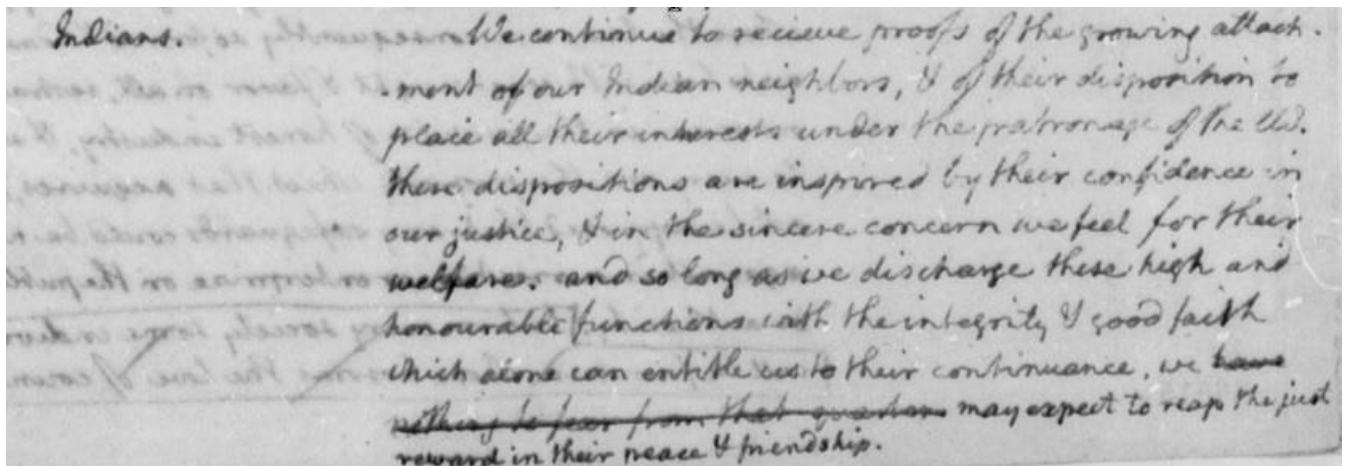 Indians. We continue to recieve proofs of the growing attach-
-ment of our Indian neighbors, & of their disposition to
place all their interests under the patronage of the US.
these dispositions are inspired by their confidence in
our justice, & in the sincere concern we feel for their
welfare. and so long as we discharge these high and
honourable functions with the integrity & good faith
which alone can entitle us to their continuance, we have
nothing to fear from that quarter may expect to reap the just
reward in their peace & friendship.